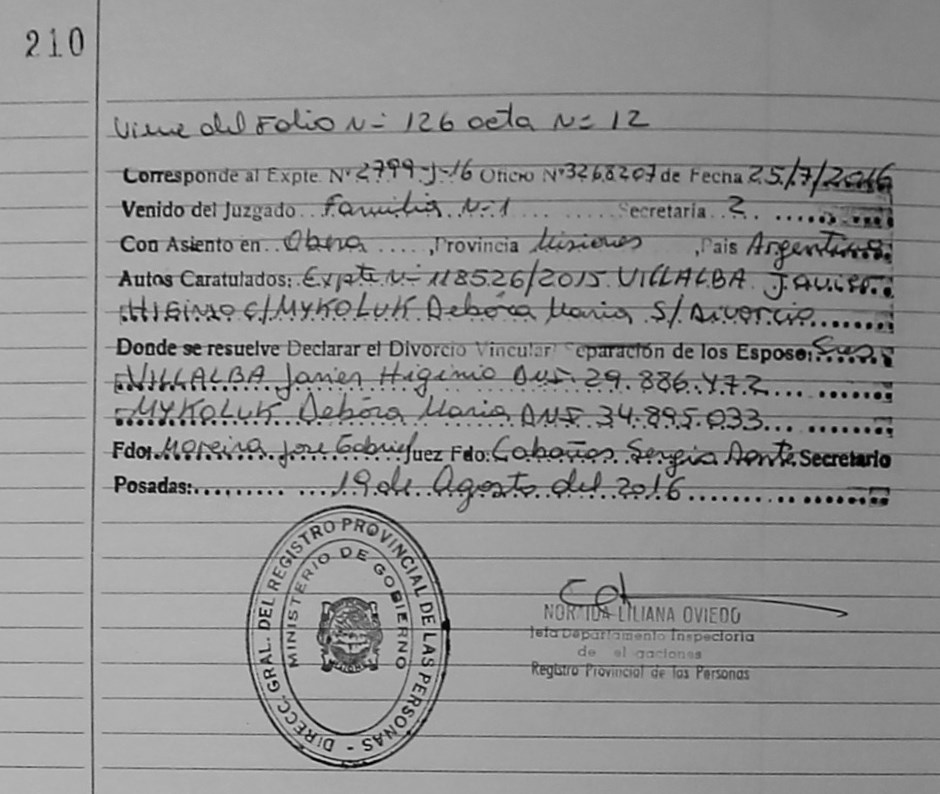 210
Viene del Folio N= 126 acta N= 12
Corresponde al Expte. N° 2799-J-16 Oficio N° 3268207 de Fecha 25/7/2016
Venido del Juzgado Familia N-1 Secretaria 2
Con Asiento en Obera, Provincia Misiones, Pais Argentina
Autos Caratulados: Expte N= 118526/2015 VILLALBA Javier
HIGINIO C/MYKOLUK Debóra Maria S/ Divorcio
Donde se resuelve Declarar el Divorcio Vincular Separación de los Esposos Sres.
VILLALBA Javier Higinio DNI 29.886.472
MYKOLUK Debóra Maria DNI 34.895.033
Fdo: Moreira Jose Gabriel Juez Fdo: Cabañas Sergio Dante Secretario
Posadas: 19 de Agosto del 2016
DIRECC. GRAL. DEL REGISTRO PROVINCIAL DE LAS PERSONAS -
MINISTERIO DE GOBIERNO
LILIANA OVIEDO
Jefa Departamento Inspectoria
de
Registro Provincial de las Personas